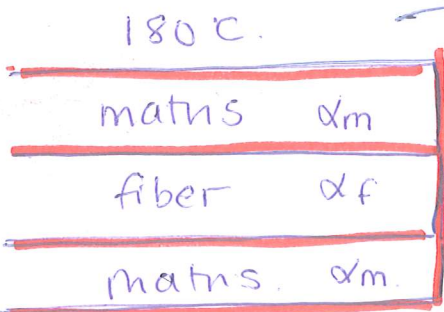 180°C.
matrix αm
fiber αf
matrix. αm.